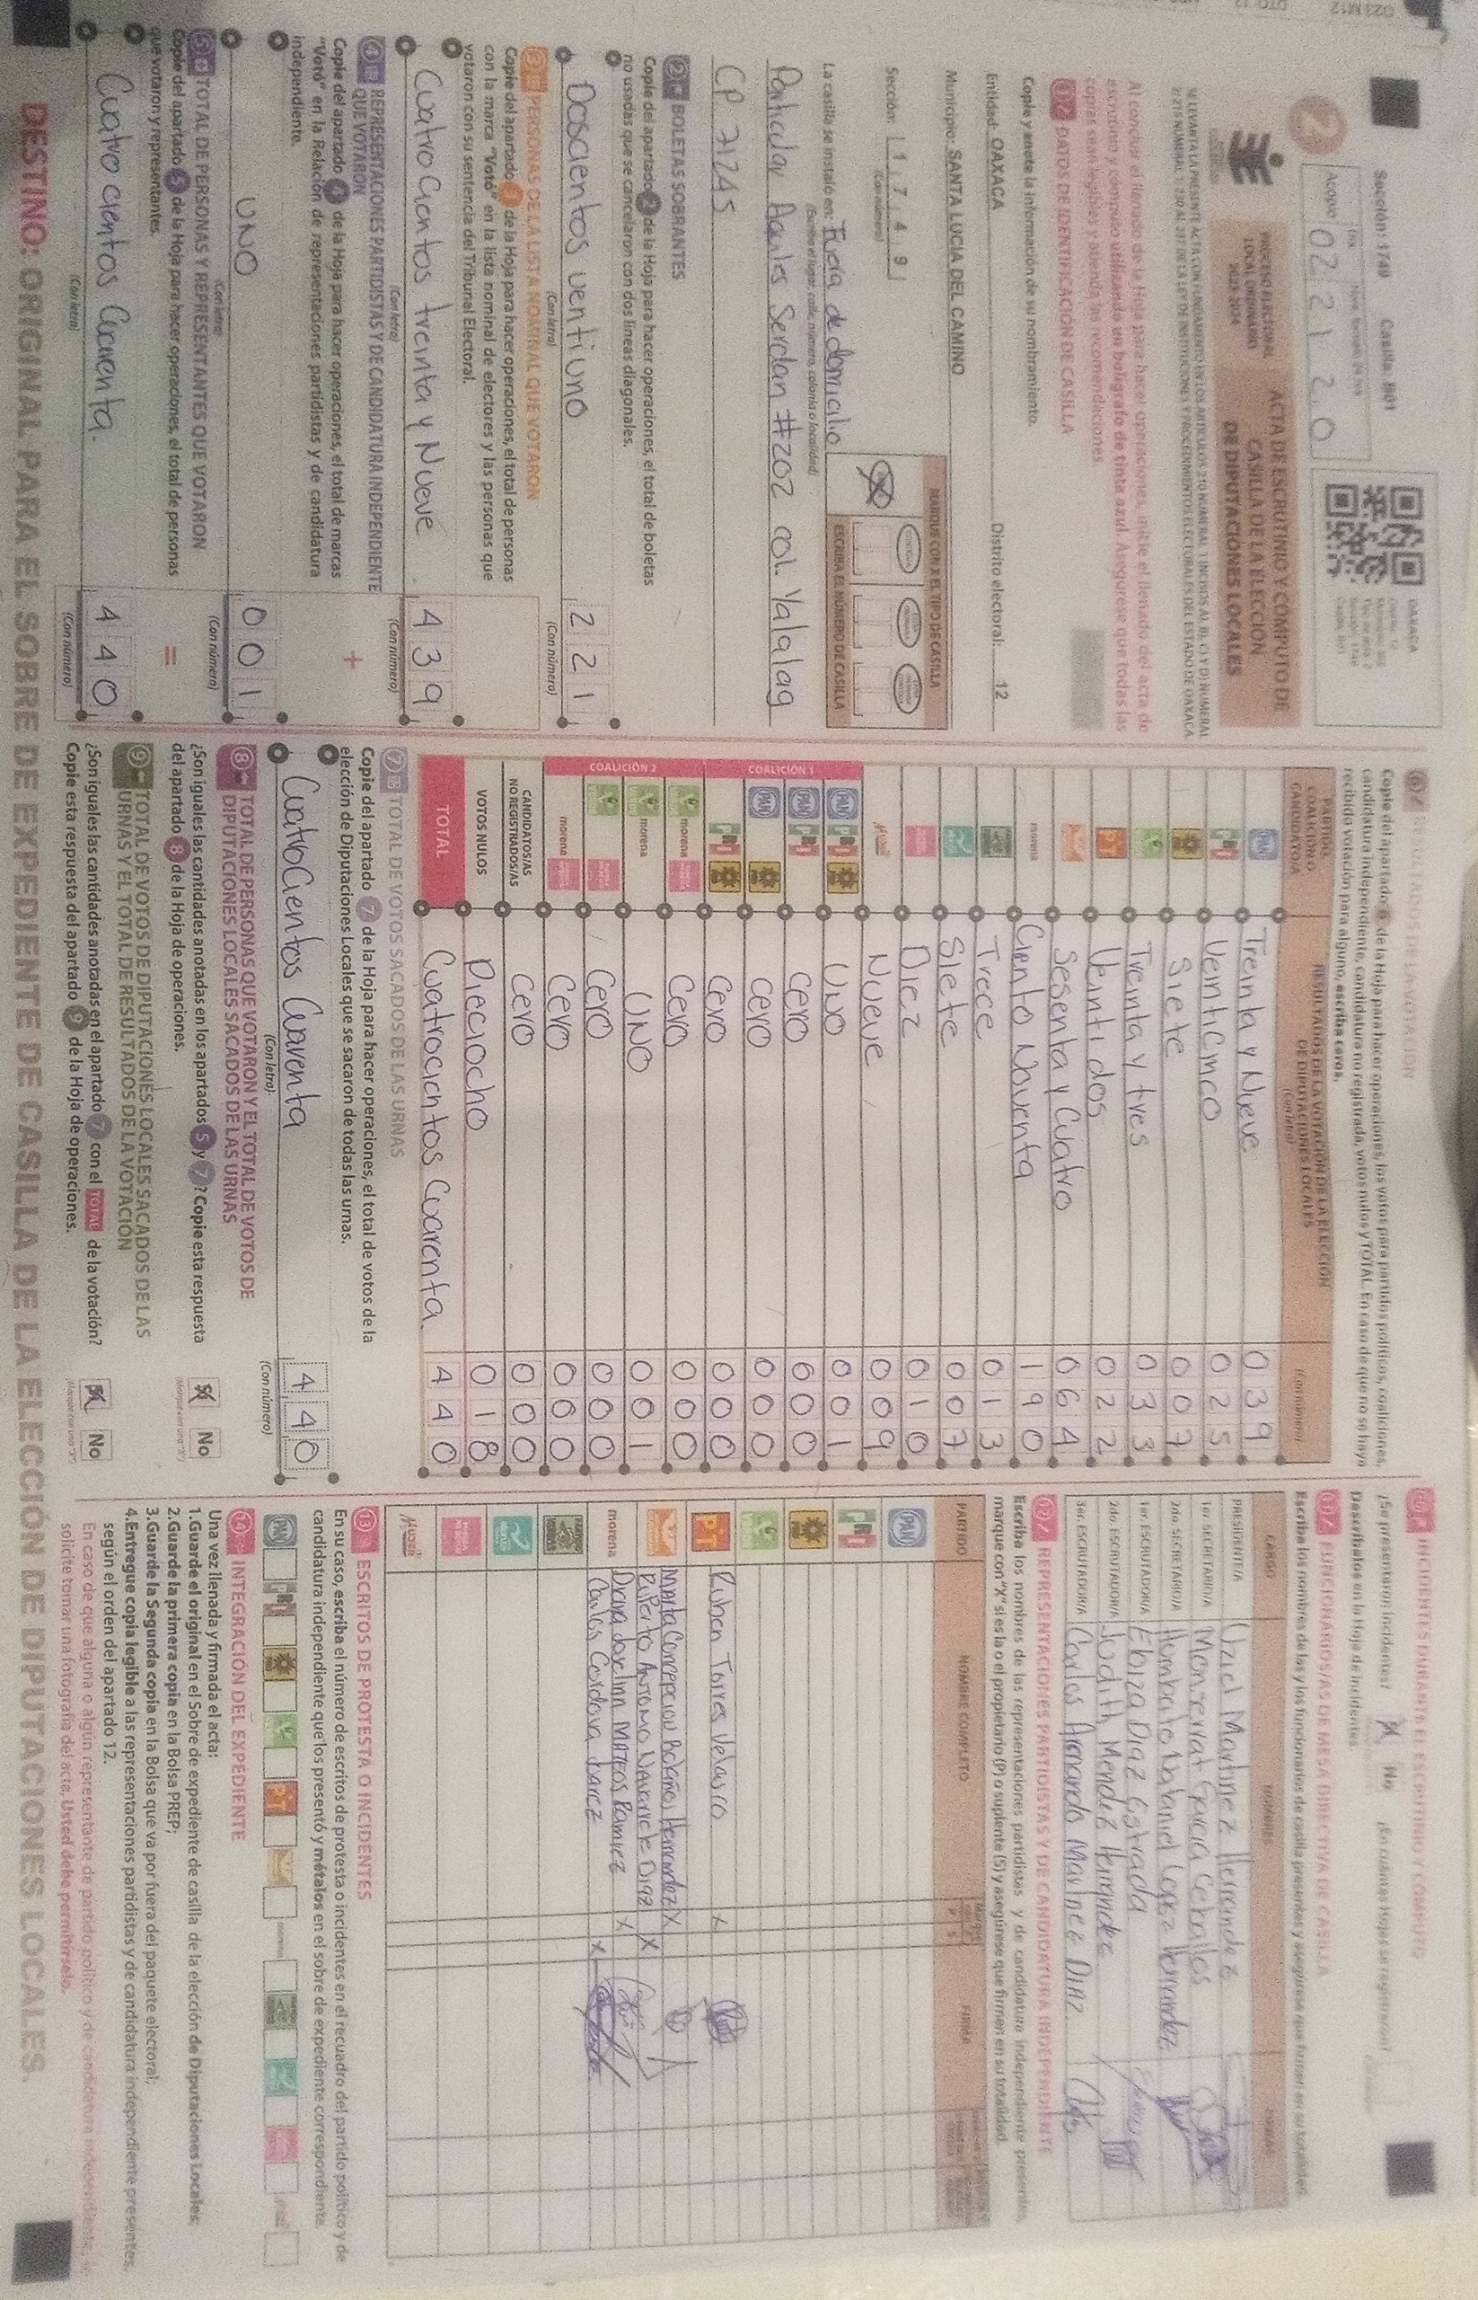 Sección: 1749 Casilla: B01
OAXACA
Acopio
02 21 20
2
PROCESO ELECTORAL
LOCAL ORDINARIO
2023-2024
ACTA DE ESCRUTINIO Y CÓMPUTO DE
CASILLA DE LA ELECCIÓN
DE DIPUTACIONES LOCALES
Al concluir el llenado de la Hoja para hacer operaciones, inicie el llenado del acta de
escrutinio y cómputo utilizando un bolígrafo de tinta azul. Asegúrese que todas las
copias sean legibles y atienda las recomendaciones.
1 DATOS DE IDENTIFICACIÓN DE CASILLA
Copie y anote la información de su nombramiento.
Entidad: OAXACA Distrito electoral: 12
Municipio: SANTA LUCIA DEL CAMINO
Sección: 1 7 4 9
(Con número)
MARQUE CON X EL TIPO DE CASILLA
ESCRIBA EL NÚMERO DE CASILLA
La casilla se instaló en: Fuera de domicilio
(Escriba el lugar, calle, número, colonia o localidad)
Particular Aquiles Serdan #202 col. Yalalag
CP 71245
2 BOLETAS SOBRANTES
Copie del apartado 2 de la Hoja para hacer operaciones, el total de boletas
no usadas que se cancelaron con dos líneas diagonales.
Doscientos ventiuno 2 2 1
(Con letra) (Con número)
3 PERSONAS DE LA LISTA NOMINAL QUE VOTARON
Copie del apartado 3 de la Hoja para hacer operaciones, el total de personas
con la marca "Votó" en la lista nominal de electores y las personas que
votaron con su sentencia del Tribunal Electoral.
Cuatro cientos treinta y Nueve 4 3 9
(Con letra) (Con número)
4 REPRESENTACIONES PARTIDISTAS Y DE CANDIDATURA INDEPENDIENTE
QUE VOTARON
+
Copie del apartado 4 de la Hoja para hacer operaciones, el total de marcas
"Votó" en la Relación de representaciones partidistas y de candidatura
independiente.
UNO 0 0 1
(Con letra) (Con número)
5 TOTAL DE PERSONAS Y REPRESENTANTES QUE VOTARON
=
Copie del apartado 5 de la Hoja para hacer operaciones, el total de personas
que votaron y representantes.
Cuatro cientos Cuarenta. 4 4 0
(Con letra) (Con número)
6 RESULTADOS DE LA VOTACIÓN
Copie del apartado 6 de la Hoja para hacer operaciones, los votos para partidos políticos, coaliciones,
candidatura independiente, candidatura no registrada, votos nulos y TOTAL. En caso de que no se haya
recibido votación para alguno, escriba ceros.
PARTIDO,
COALICIÓN O
CANDIDATO/A
RESULTADOS DE LA VOTACIÓN DE LA ELECCIÓN
DE DIPUTACIONES LOCALES
(Con letra)
(Con número)
PAN Treinta y Nueve 0 3 9
PRI VentiCinco 0 2 5
PRD Siete 0 0 7
Treinta y tres 0 3 3
PT Veinti dos 0 2 2
Sesenta y Cuatro 0 6 4
morena Ciento Noventa 1 9 0
Trece 0 1 3
Siete 0 0 7
Diez 0 1 0
MUJER Nueve 0 0 9
COALICIÓN 1
PAN PRI PRD UNO 0 0 1
PAN PRI Cero 0 0 0
PAN PRD cero 0 0 0
PRI PRD Cero 0 0 0
COALICIÓN 2
morena Cero 0 0 0
morena UNO 0 0 1
Cero 0 0 0
morena Cero 0 0 0
CANDIDATOS/AS
NO REGISTRADOS/AS
Cero 0 0 0
VOTOS NULOS Dieciocho 0 1 8
TOTAL Cuatrocientos Cuarenta. 4 4 0
7 TOTAL DE VOTOS SACADOS DE LAS URNAS
Copie del apartado 7 de la Hoja para hacer operaciones, el total de votos de la
elección de Diputaciones Locales que se sacaron de todas las urnas.
Cuatrocientos Cuarenta 4 4 0
(Con letra) (Con número)
8 TOTAL DE PERSONAS QUE VOTARON Y EL TOTAL DE VOTOS DE
DIPUTACIONES LOCALES SACADOS DE LAS URNAS
¿Son iguales las cantidades anotadas en los apartados 5 y 7? Copie esta respuesta
del apartado 8 de la Hoja de operaciones.
Sí No
9 TOTAL DE VOTOS DE DIPUTACIONES LOCALES SACADOS DE LAS
URNAS Y EL TOTAL DE RESULTADOS DE LA VOTACIÓN
¿Son iguales las cantidades anotadas en el apartado 7 con el TOTAL de la votación?
Copie esta respuesta del apartado 9 de la Hoja de operaciones.
Sí No
10 INCIDENTES DURANTE EL ESCRUTINIO Y CÓMPUTO
¿Se presentaron incidentes? Sí No ¿En cuántas Hojas se registraron?
Descríbalos en la Hoja de incidentes.
11 FUNCIONARIOS/AS DE MESA DIRECTIVA DE CASILLA
Escriba los nombres de las y los funcionarios de casilla presentes y asegúrese que firmen en su totalidad.
CARGO NOMBRE FIRMAS
PRESIDENTE/A Uziel Martinez Hernandez
1er. SECRETARIO/A Monserrat Garcia Ceballos
2do. SECRETARIO/A Humberto Natanael Lopez Hernandez
1er. ESCRUTADOR/A Ebiza Diaz Estrada
2do. ESCRUTADOR/A Judith Mendez Hernandez
3er. ESCRUTADOR/A Carlos Armando Martinez Diaz.
12 REPRESENTACIONES PARTIDISTAS Y DE CANDIDATURA INDEPENDIENTE
Escriba los nombres de las representaciones partidistas y de candidatura independiente presentes,
marque con "X" si es la o el propietario (P) o suplente (S) y asegúrese que firmen en su totalidad.
PARTIDO NOMBRE COMPLETO P S FIRMA
PAN
PRI
PRD
PT Ruben Torres Velasco x
Maria Concepcion Bolaños Hernandez X
Ruperto Antonio Navarrete Diaz X
morena Diana Joselinn Mateos Ramirez X
Carlos Cordova Juarez X
MUJER
13 ESCRITOS DE PROTESTA O INCIDENTES
En su caso, escriba el número de escritos de protesta o incidentes en el recuadro del partido político y de
candidatura independiente que los presentó y métalos en el sobre de expediente correspondiente.
PAN PRI PRD PT morena
14 INTEGRACIÓN DEL EXPEDIENTE
Una vez llenada y firmada el acta:
1.Guarde el original en el Sobre de expediente de casilla de la elección de Diputaciones Locales;
2.Guarde la primera copia en la Bolsa PREP;
3.Guarde la Segunda copia en la Bolsa que va por fuera del paquete electoral;
4.Entregue copia legible a las representaciones partidistas y de candidatura independiente presentes,
según el orden del apartado 12.
En caso de que alguna o algún representante de partido político y de candidatura independiente, le
solicite tomar una fotografía del acta, Usted debe permitírselo.
DESTINO: ORIGINAL PARA EL SOBRE DE EXPEDIENTE DE CASILLA DE LA ELECCIÓN DE DIPUTACIONES LOCALES.